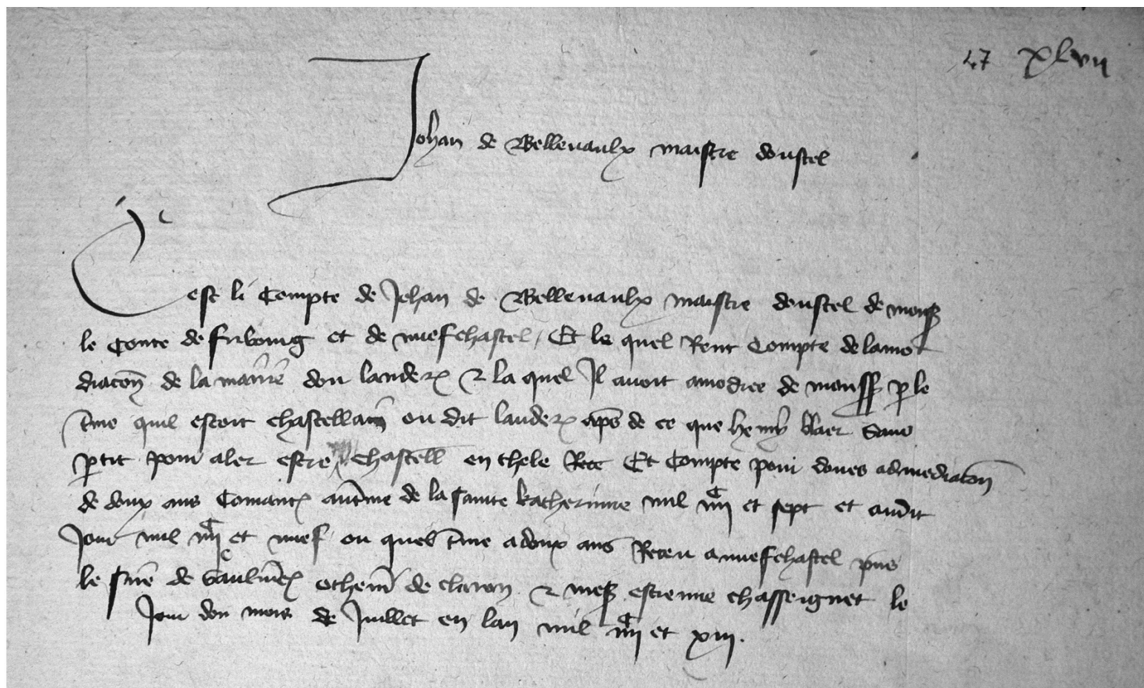 47 xlvii
Johan de Vellenaulx maistre doustel
C'est li Compte de Jehan de Vellenaulx maistre doustel de mons
le Conte de fribourg et de nuefchastel, Et le quel Rent Compte de lamo
diacon de la mairie dou landeron & la quel Il avoit amodiee de mons p le
tme quil estoit chastellain ou dit landeron aps de ce que henry sen
ptit pour aler estre chastell en Et Compte pour doues admodiacon
de doux ans Comanc. de la sainte katherinne mil iiii et sept et oudit
Jour mil iiii et nuef ou quel tme a doux ans Receu a nuefchastel pns
le de othenin de cleron & estienne chasseignet le
Jour dou mois de Juillet en lan mil iiii et xiii.